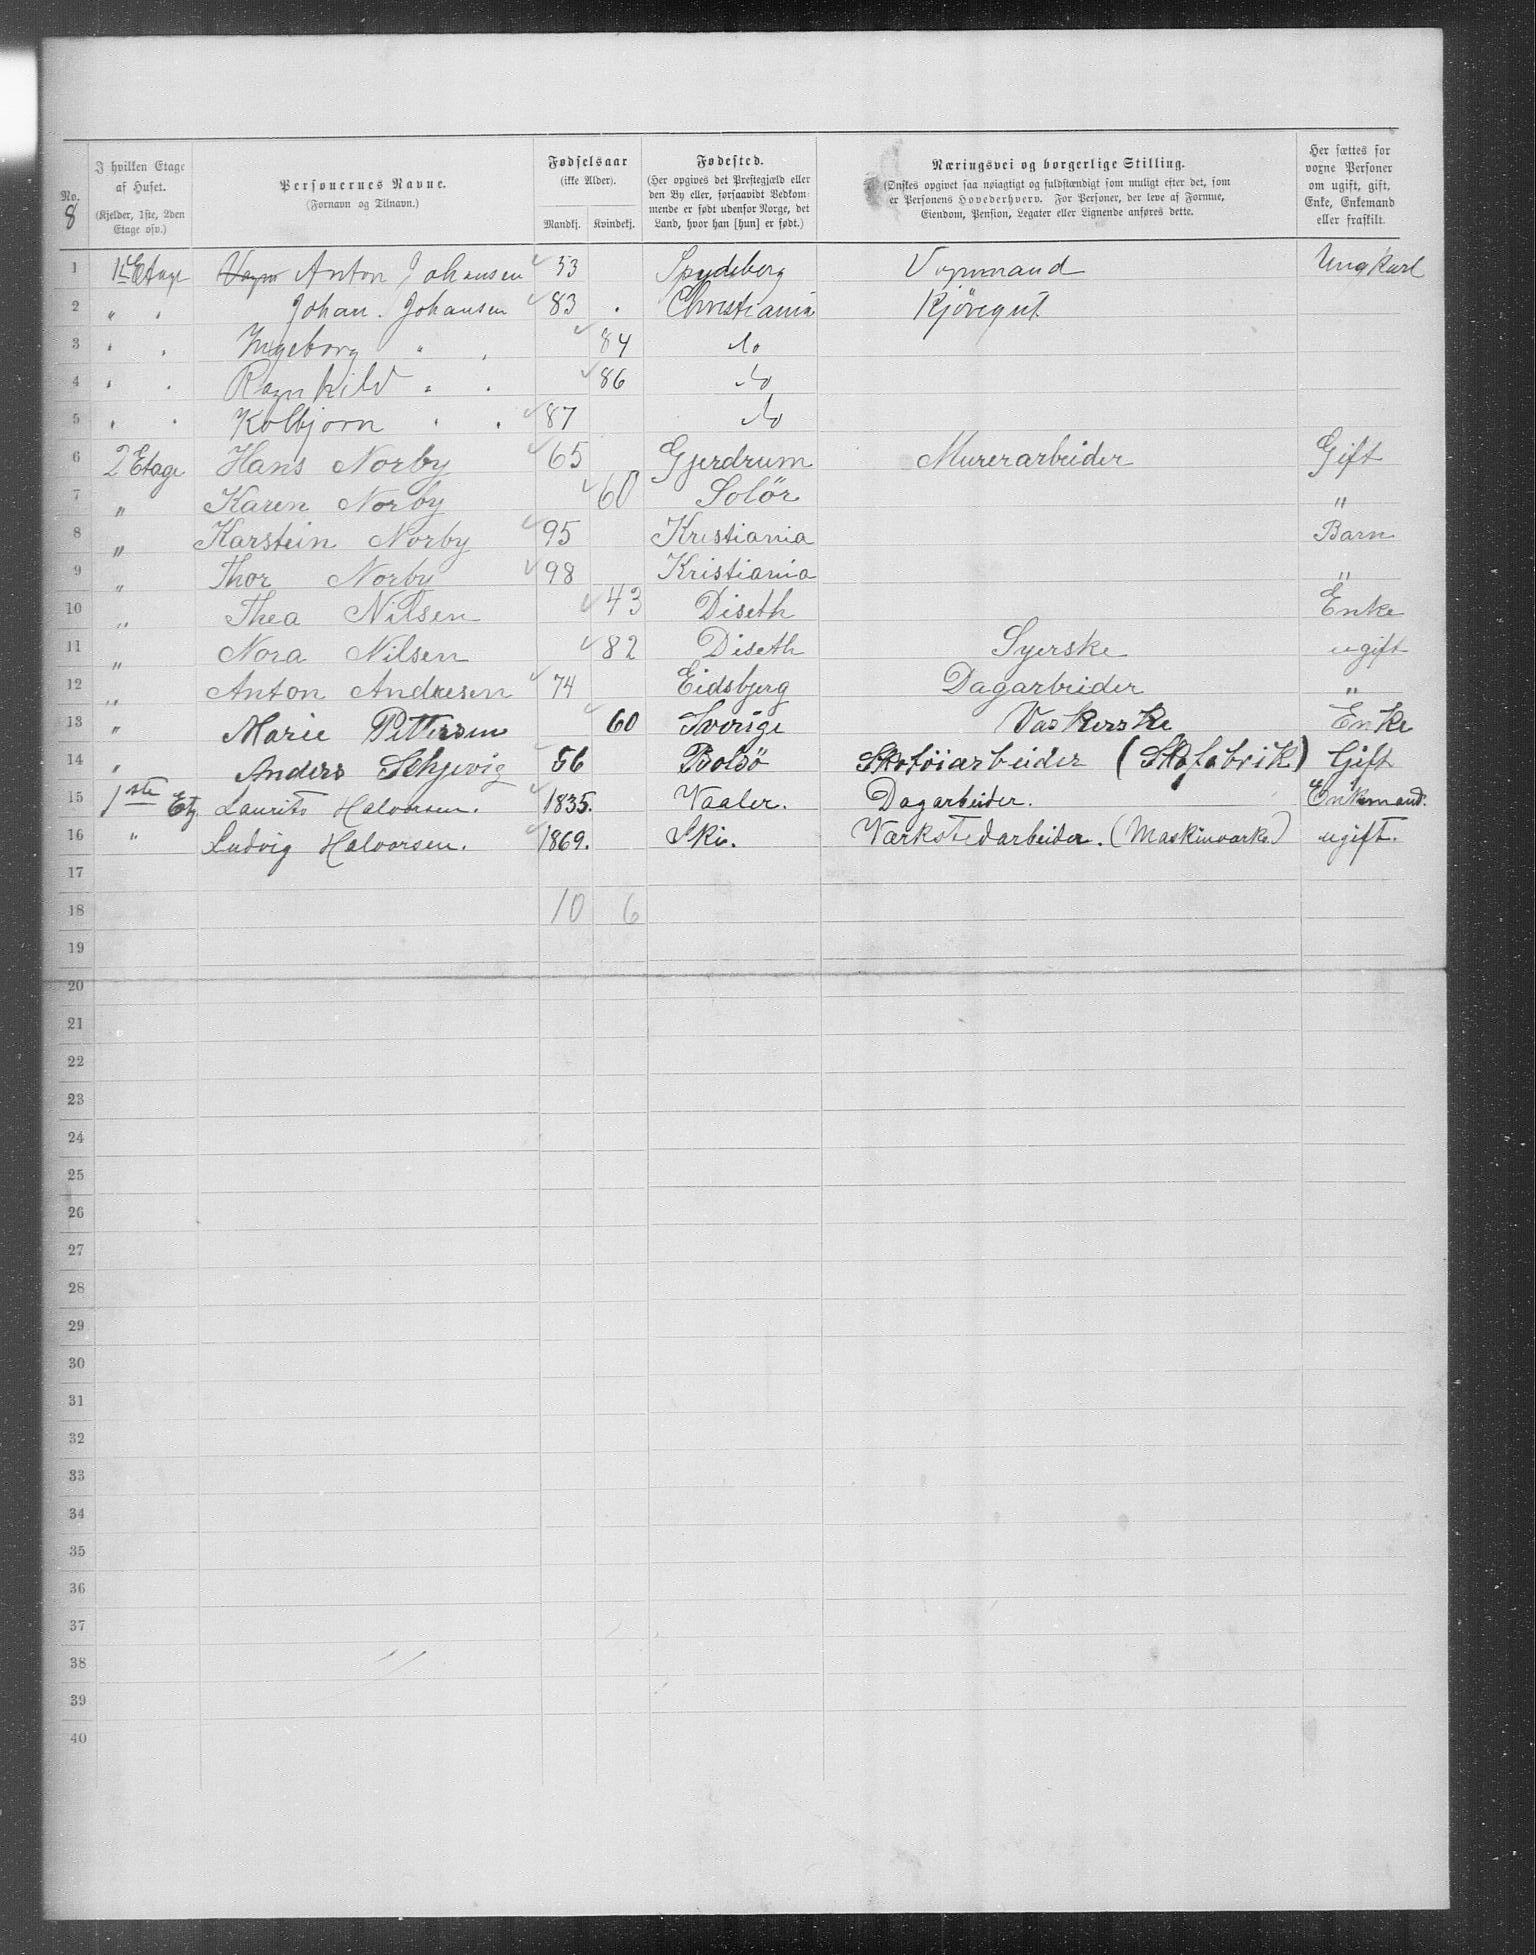 No. 8 | I hvilken Etage af Huset. (Kjelder, 1ste, 2den Etage osv.) | Personernes Navne. (Fornavn og Tilnavn.) | Fødselsaar (ikke Alder). Mandkj. Kvindekj. | Fødested. (Her opgives det Prestegjæld eller den By eller, forsaavidt Vedkommende er født udenfor Norge, det Land, hvor han [hun] er født.) | Næringsvei og borgerlige Stilling. (Ønskes opgivet saa nøiagtigt og fuldstændigt som muligt efter det, som er Personens Hovederhverv. For Personer, der leve af Formue, Eiendom, Pension, Legater eller Lignende anføres dette. | Her sættes for voxne Personer om ugift, gift, Enke, Enkemand eller fraskilt.
1 1ste Etage Anton Johansen 53 Spydeberg Vognmand Ungkarl
2 " " Johan. Johansen 83 Christiania Kjöregut
3 " " Ingeborg " " 84 do
4 " " Ragnhild " " 86 do
5 " " Kolbjorn " " 87 do
6 2 Etage Hans Norby 65 Gjerdrum Murerarbeider Gift
7 " Karen Norby 60 Solör "
8 " Karstein Norby 95 Kristiania Barn
9 " Thor Norby 98 Kristiania "
10 " Thea Nilsen 43 Diseth Enke
11 " Nora Nilsen 82 Diseth Syerske ugift
12 " Anton Andresen 74 Eidsbjerg Dagarbeider "
13 " Marie Pettersen 60 Sverige Vaskerske Enke
14 " Anders Schjevig 56 Bolsö Skotöiarbeider (Skofabrik) Gift
15 1ste Etg. Laurits Halvorsen. 1835. Vaaler. Dagarbeider. Enkemand.
16 " Ludvig Halvorsen. 1869. Ski. Værkstedarbeider. (Maskinværks) ugift.
17
18 10 6
19
20
21
22
23
24
25
26
27
28
29
30
31
32
33
34
35
36
37
38
39
40